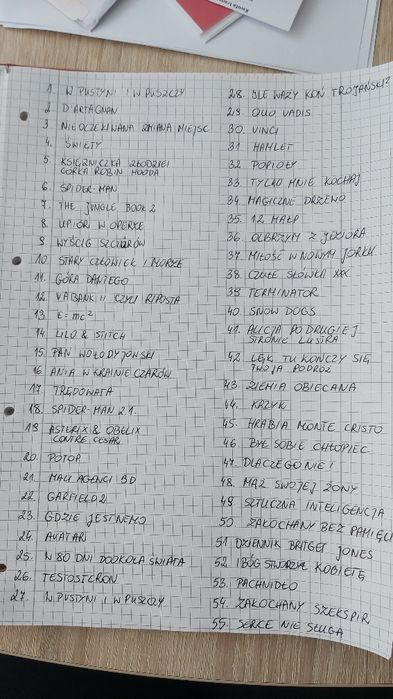 1. W PUSTYNI I W PUSZCZY
2. D'ARTAGNAN
3 NIEOCZEKIWANA ZMIANA MIEJSC
4. ŚWIĘTY
5. KSIĘŻNICZKA ZŁODZIEI
CÓRKA ROBIN HOODA
6. SPIDER-MAN
7. THE JUNGLE BOOK 2
8. UPIÓR W OPERZE
9 WYŚCIG SZCZURÓW
10 STARY CZŁOWIEK I MORZE
11. GÓRA DANTEGO
12. VABANK II CZYLI RIPOSTA
13 E=mc²
14. LILO & STITCH
15. PAN WOŁODYJOWSKI
16 ANIA W KRAINIE CZARÓW
17 TRĘDOWATA
18. SPIDER-MAN 2.1.
19 ASTERIX & OBELIX
CONTRE CESAR
20. POTOP
21. MALI AGENCI 3D
22. GARFIELD 2
23. GDZIE JEST NEMO
24. AVATAR
25. W 80 DNI DOOKOŁA ŚWIATA
26. TESTOSTERON
27. W PUSTYNI I W PUSZCZY
28. ILE WAŻY KOŃ TROJAŃSKI?
29 QUO VADIS
30. VINCI
31 HAMLET
32 POPIOŁY
33. TYLKO MNIE KOCHAJ
34. MAGICZNE DRZEWO
35. 12 MAŁP
36. OLBRZYM Z JEZIORA
37. MIŁOŚĆ W NOWYM JORKU
38. CZUŁE SŁÓWKA XXX
39 TERMINATOR
40 SNOW DOGS
41. ALICJA PO DRUGIEJ
STRONIE LUSTRA
42. LĘK TU KOŃCZY SIĘ
TWOJA PODRÓŻ
43 ZIEMIA OBIECANA
44. KRZYK
45. HRABIA MONTE CRISTO
46. BYŁ SOBIE CHŁOPIEC
47. DLACZEGO NIE!
48. MĄŻ SWOJEJ ŻONY
49 SZTUCZNA INTELIGENCJA
50 ZAKOCHANY BEZ PAMIĘCI
51. DZIENNIK BRITGET JONES
52. I BÓG STWORZYŁ KOBIETĘ
53. PACHNIDŁO
54. ZAKOCHANY SZEKSPIR
55. SERCE NIE SŁUGA